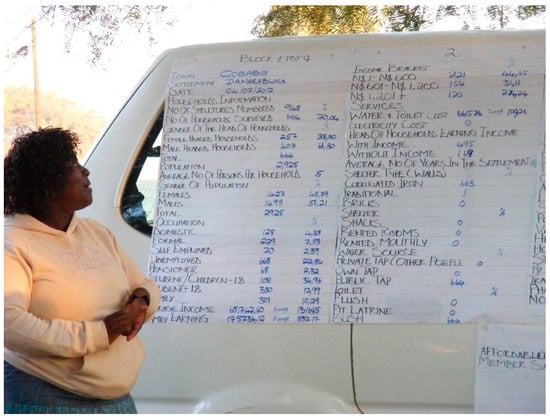 BLOCK 1 OF 9
TOWN GOBABIS
SETTLEMENT DAMARABLOCK
DATE 04/07/2012
HOUSEHOLDS INFORMATION
NO OF STRUCTURES NUMBERED 948 %
NO OF HOUSEHOLD SURVEYED 664 70,04
GENDER OF THE HEAD OF HOUSEHOLDS
FEMALE HEADED HOUSEHOLDS 257 38,70
MALE HEADED HOUSEHOLDS 407 61,30
TOTAL 664
POPULATION 2925
AVERAGE NO OF PERSONS PER HOUSEHOLD 5
GENDER OF POPULATION %
FEMALES 1427 48,79
MALES 1498 51,21
TOTAL 2925
OCCUPATION %
DOMESTIC 128 4,38
FORMAL 229 7,83
SELF EMPLOYED 70 2,39
UNEMPLOYED 668 22,84
PENSIONER 68 2,32
STUDENT/CHILDREN-18
UDENT-18 380 12,99
MILY 301 10,29
RAGE INCOME
MILY EARNING
2
INCOME BRACKETS
N$1-N$600 221
N$601-N$1,200 154 31,11
N$1,201+ 120 24,24
SERVICES
WATER & TOILET COST
ELECTRICITY COST 0
HEAD OF HOUSEHOLDS EARNING INCOME
WITH INCOME 495
WITHOUT INCOME 169
AVERAGE NO OF YEARS IN THE SETTLEMENT
SHELTER TYPE (WALLS) %
CORRUGATED IRON 663
TRADITIONAL 1
BRICKS 0
SHELTER %
SHACKS 0
RENTED ROOMS 0
RENTED MONTHLY 0
WATER SOURCE %
PRIVATE TAP (OTHER PEOPLE) 0
OWN TAP 0
PUBLIC TAP 664
TOILET %
FLUSH 0
PIT LATRINE 0
BUSH 664
AFFORDABLE
MEMBER SA